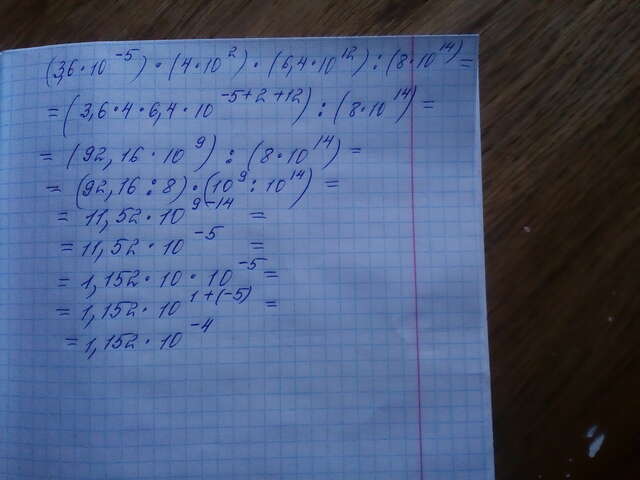 (3,6·10⁻⁵)·(4·10²)·(6,4·10¹²):(8·10¹⁴)=
=(3,6·4·6,4·10⁻⁵⁺²⁺¹²):(8·10¹⁴)=
=(92,16·10⁹):(8·10¹⁴)=
=(92,16:8)·(10⁹:10¹⁴)=
=11,52·10⁹⁻¹⁴=
=11,52·10⁻⁵=
=1,152·10·10⁻⁵=
=1,152·10¹⁺⁽⁻⁵⁾=
=1,152·10⁻⁴